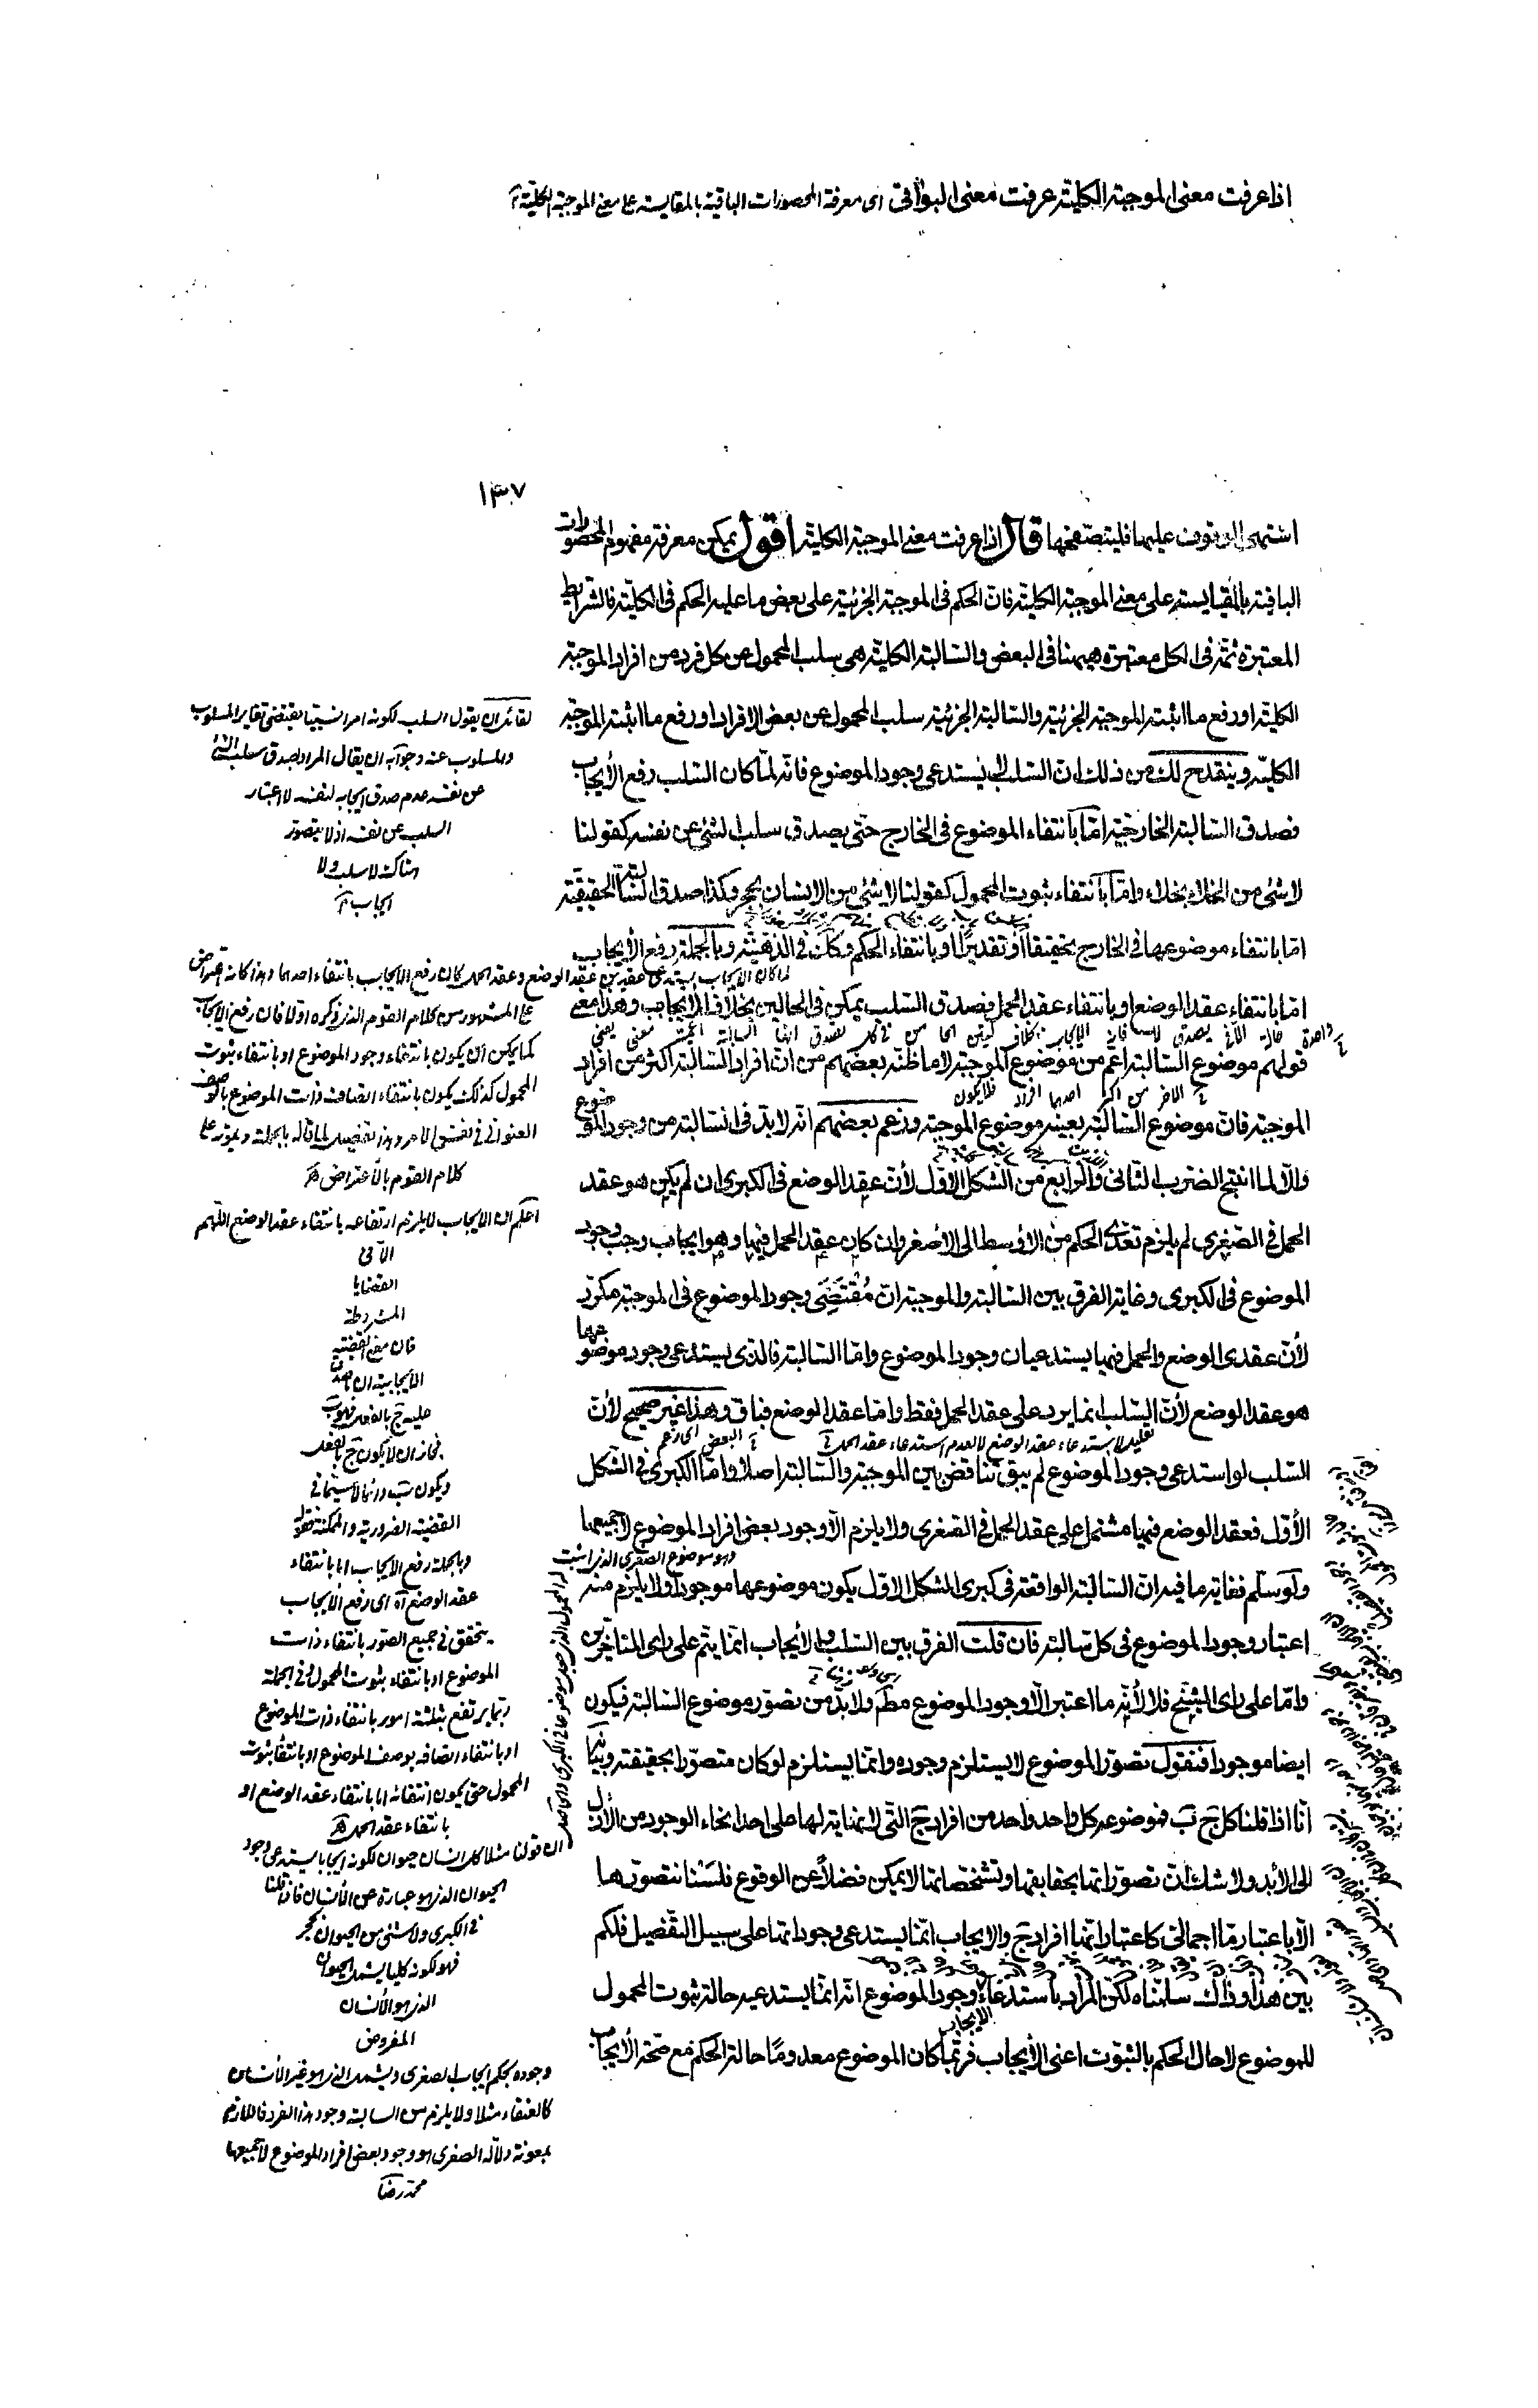 اذا عرفت معنى الموجبة الكلية عرفت معنى البواقى اى معرفة المحصورات الباقية بالمقايسة على معنى الموجبة الكلية
١٣٧
اشتهى الوقوف عليها فليتصفحها قال اذا عرفت معنى الموجبة الكلية اقول يمكن معرفة مفهوم المحصورات
الباقية بالمقايسة على معنى الموجبة الكلية فان الحكم فى الموجبة الجزئية على بعض ما عليه الحكم فى الكلية فالشرايط
المعتبرة ثمة فى الكل معتبرة ههنا فى البعض والسالبة الكلية هى سلب المحمول عن كل فرد من افراد الموجبة
الكلية او رفع ما اثبته الموجبة الجزئية والسالبة الجزئية سلب المحمول عن بعض الافراد او رفع ما اثبته الموجبة
الكلية وينقدح لك من ذلك ان السلب لا يستدعى وجود الموضوع فانه لما كان السلب رفع الأيجاب
فصدق السالبة الخارجية اما بانتفاء الموضوع فى الخارج حتى يصدق سلب الشئ عن نفسه كقولنا
لا شئ من الخلاء بخلاء واما بانتفاء ثبوت المحمول كقولنا لا شئ من الانسان بحجر وكذا صدق السالبة الحقيقة
اما بانتفاء موضوعها فى الخارج تحقيقًا او تقديرًا او بانتفاء الحكم وكك فى الذهنية وبالجملة رفع الأيجاب
اما بانتفاء عقد الوضع او بانتفاء عقد الحمل فصدق السلب يمكن فى الحالين بخلاف الايجاب وهذا معنى
قولهم موضوع السالبة اعم من موضوع الموجبة لا ما ظنه بعضهم من ان افراد السالبة اكثر من افراد
الموجبة فان موضوع السالبة بعينه موضوع الموجبة وزعم بعضهم انه لا بد فى السالبة من وجود الموضوع
والا لما انتج الضرب الثانى والرابع من الشكل الاول لأن عقد الوضع فى الكبرى ان لم يكن هو عقد
الحمل فى الصغرى لم يلزم تعدى الحكم من الاوسط الى الأصغر وان كان عقد الحمل فيها وهو ايجاب وجب وجود
الموضوع فى الكبرى وغاية الفرق بين السالبة والموجبة ان مُقتَضى وجود الموضوع فى الموجبة مكرر
لأن عقدى الوضع والحمل فيها يستدعيان وجود الموضوع واما السالبة فالذى يستدعى وجود موضوعها
هو عقد الوضع لأن السلب انما يرد على عقد الحمل فقط واما عقد الوضع فباق وهذا غير صحيح لأن
السلب لو استدعى وجود الموضوع لم يبق تناقض بين الموجبة والسالبة اصلا واما الكبرى فى الشكل
الأول فعقد الوضع فيها مشتمل على عقد الحمل فى الصغرى ولا يلزم الا وجود بعض افراد الموضوع لا جميعها
ولو سلم فغاية ما فيه ان السالبة الواقعة فى كبرى الشكل الاول يكون موضوعها موجودا ولا يلزم منه
اعتبار وجود الموضوع فى كل سالبة فان قلت الفرق بين السلب والأيجاب انما يتم على راى المتاخرين
واما على راى الشيخ فلا لأنه ما اعتبر الا وجود الموضوع مطم ولا بد من تصور موضوع السالبة فيكون
ايضا موجودا فنقول تصور الموضوع لا يستلزم وجوده وانما يستلزم لو كان متصورا بحقيقته وبيانه
انا اذا قلنا كل ج ب فموضوعه كل واحد واحد من افراد ج التى لا نهاية لها على احد انحاء الوجود من الأزل
الى الأبد ولا شك ان تصوراتها بحقايقها وتشخصاتها لا يمكن فضلاً عن الوقوع فلسنا نتصورها
الا باعتبار ما اجمالى كاعتبار انها افراد ج والايجاب انما يستدعى وجوداتها على سبيل التفصيل فلكم
بين هذا وذاك سلمناه لكن المراد باستدعاء الايجاب وجود الموضوع انه انما يستدعيه حالة ثبوت المحمول
للموضوع لا حال الحكم بالثبوت اعنى الأيجاب فربما كان الموضوع معدومًا حالة الحكم مع صحة الأيجاب
لقائل ان يقول السلب لكونه امرا نسبيا يقتضى تغاير المسلوب
والمسلوب عنه وجوابه ان يقال المراد بصدق سلب الشئ
عن نفسه عدم صدق ايجابه لنفسه لا اعتبار
السلب عن نفسه اذ لا يتصور
هناك لا سلب ولا
ايجاب
لما كان الايجاب يستدعى عقدين عقد الوضع وعقد الحمل كان رفع الايجاب بانتفاء احدهما وهذا كانه اعتراض
على المشهور من كلام القوم الذى ذكره اولا فان رفع الايجاب
كما يمكن ان يكون بانتفاء وجود الموضوع او بانتفاء ثبوت
المحمول كذلك يكون بانتفاء اتصاف ذات الموضوع بالوصف
العنوانى فى نفس الامر وهذا تفصيل لما قاله بالجملة
كلام القوم بالاعتراض
اعلم ان الايجاب لا يلزم ارتفاعه بانتفاء عقد الوضع اللهم
الا فى
القضايا
المشروطة
فان معنى القضية
الأيجابية ان ما صدق
عليه ج بالفعل فهو ب
فجاز ان لا يكون ج بالفعل
ويكون ب دائما لا سيما فى
القضية الضرورية والممكنة
وبالجملة رفع الايجاب اما بانتفاء
عقد الوضع آه اى رفع الأيجاب
يتحقق فى جميع الصور بانتفاء ذات
الموضوع او بانتفاء ثبوت المحمول وفى الجملة
ربما يرتفع بثلثة امور بانتفاء ذات الموضوع
او بانتفاء اتصافه بوصف الموضوع او بانتفاء ثبوت
المحمول حتى يكون انتفائه اما بانتفاء عقد الوضع او
بانتفاء عقد الحمل
ان قولنا مثلا كل انسان حيوان لكونه ايجابا يستدعى وجود
الحيوان الذى هو عبارة عن الأنسان فاذا قلنا
فى الكبرى ولا شئ من الحيوان بحجر
فهو لكونه كليا يشمل الحيوان
الذى هو الأنسان
المفروض
وجوده بحكم ايجاب الصغرى ويشمل الذى هو غير الأنسان
كالعنقاء مثلا ولا يلزم من السالبة وجود هذا الفرد فاللازم
بمعونة دلالة الصغرى هو وجود بعض افراد الموضوع لا جميعها
محمد رضا
تعليل لاستدعاء عقد الوضع لا لعدم استدعاء عقد الحمل
اى زعم البعض
وهو موضوع الصغرى الذى اثبت